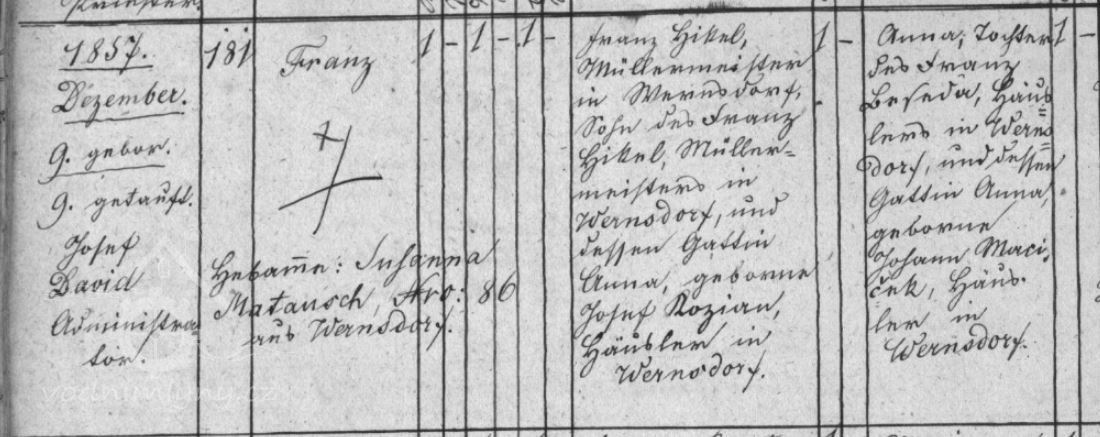 Priester.
1857.
Dezember.
9. gebor.
9. getauft.
Josef
David
Administra=
tor.
181
Franz
Hebam̅e: Susanna
Matausch, Nro: 86
aus Wernsdorf.
1 - 1 - 1 -
Franz Hikel,
Müllermeister
in Wernsdorf,
Sohn des Franz
Hikel, Müller=
meisters in
Wernsdorf, und
dessen Gattin
Anna, geborne
Josef Kozian,
Häusler in
Wernsdorf.
1 -
Anna, Tochter
des Franz
Beseda, Häus=
lers in Werns=
dorf, und dessen
Gattin Anna,
geborne
Johann Maci=
ček, Häus=
ler in
Wernsdorf.
1 -
vodnimlyny.cz